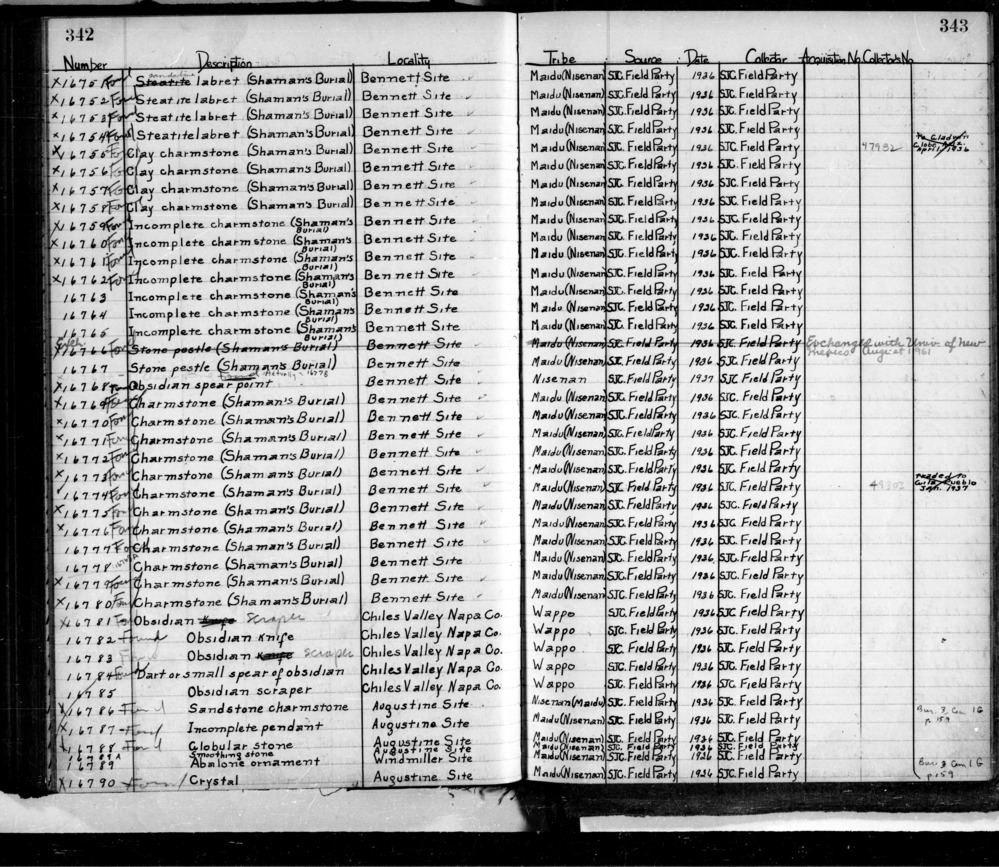 342
343
Number Description Locality Tribe Source Date Collector Acquisition No. Collector's No.
X16751 Steatite labret (Shaman's Burial) Bennett Site Maidu (Nisenan) SJC. Field Party 1936 SJC. Field Party
X16752 Steatite labret (Shaman's Burial) Bennett Site Maidu (Nisenan) SJC. Field Party 1936 SJC. Field Party
X16753 Steatite labret (Shaman's Burial) Bennett Site Maidu (Nisenan) SJC. Field Party 1936 SJC. Field Party
X16754 Steatite labret (Shaman's Burial) Bennett Site Maidu (Nisenan) SJC. Field Party 1936 SJC. Field Party
X16755 Clay charmstone (Shaman's Burial) Bennett Site Maidu (Nisenan) SJC. Field Party 1936 SJC. Field Party 47932
X16756 Clay charmstone (Shaman's Burial) Bennett Site Maidu (Nisenan) SJC. Field Party 1936 SJC. Field Party
X16757 Clay charmstone (Shaman's Burial) Bennett Site Maidu (Nisenan) SJC. Field Party 1936 SJC. Field Party
X16758 Clay charmstone (Shaman's Burial) Bennett Site Maidu (Nisenan) SJC. Field Party 1936 SJC. Field Party
X16759 Incomplete charmstone (Shaman's Burial) Bennett Site Maidu (Nisenan) SJC. Field Party 1936 SJC. Field Party
X16760 Incomplete charmstone (Shaman's Burial) Bennett Site Maidu (Nisenan) SJC. Field Party 1936 SJC. Field Party
X16761 Incomplete charmstone (Shaman's Burial) Bennett Site Maidu (Nisenan) SJC. Field Party 1936 SJC. Field Party
X16762 Incomplete charmstone (Shaman's Burial) Bennett Site Maidu (Nisenan) SJC. Field Party 1936 SJC. Field Party
16763 Incomplete charmstone (Shaman's Burial) Bennett Site Maidu (Nisenan) SJC. Field Party 1936 SJC. Field Party
16764 Incomplete charmstone (Shaman's Burial) Bennett Site Maidu (Nisenan) SJC. Field Party 1936 SJC. Field Party
16765 Incomplete charmstone (Shaman's Burial) Bennett Site Maidu (Nisenan) SJC. Field Party 1936 SJC. Field Party
X16766 Stone pestle (Shaman's Burial) Bennett Site Maidu (Nisenan) SJC. Field Party 1936 SJC. Field Party Exchanged with Univ. of New Mexico August 1961
16767 Stone pestle (Shaman's Burial) Bennett Site Maidu (Nisenan) SJC. Field Party 1936 SJC. Field Party
X16768 Obsidian spear point Bennett Site Nisenan SJC. Field Party 1937 SJC. Field Party
X16769 Charmstone (Shaman's Burial) Bennett Site Maidu (Nisenan) SJC. Field Party 1936 SJC. Field Party
X16770 Charmstone (Shaman's Burial) Bennett Site Maidu (Nisenan) SJC. Field Party 1936 SJC. Field Party
X16771 Charmstone (Shaman's Burial) Bennett Site Maidu (Nisenan) SJC. Field Party 1936 SJC. Field Party
X16772 Charmstone (Shaman's Burial) Bennett Site Maidu (Nisenan) SJC. Field Party 1936 SJC. Field Party
X16773 Charmstone (Shaman's Burial) Bennett Site Maidu (Nisenan) SJC. Field Party 1936 SJC. Field Party
X16774 Charmstone (Shaman's Burial) Bennett Site Maidu (Nisenan) SJC. Field Party 1936 SJC. Field Party
X16775 Charmstone (Shaman's Burial) Bennett Site Maidu (Nisenan) SJC. Field Party 1936 SJC. Field Party
X16776 Charmstone (Shaman's Burial) Bennett Site Maidu (Nisenan) SJC. Field Party 1936 SJC. Field Party
16777 Charmstone (Shaman's Burial) Bennett Site Maidu (Nisenan) SJC. Field Party 1936 SJC. Field Party
16778 Charmstone (Shaman's Burial) Bennett Site Maidu (Nisenan) SJC. Field Party 1936 SJC. Field Party
X16779 Charmstone (Shaman's Burial) Bennett Site Maidu (Nisenan) SJC. Field Party 1936 SJC. Field Party
X16780 Charmstone (Shaman's Burial) Bennett Site Maidu (Nisenan) SJC. Field Party 1936 SJC. Field Party
X16781 Obsidian Knife scraper Chiles Valley Napa Co. Wappo SJC. Field Party 1936 SJC. Field Party
16782 Found Obsidian Knife Chiles Valley Napa Co. Wappo SJC. Field Party 1936 SJC. Field Party
16783 Obsidian Knife scraper Chiles Valley Napa Co. Wappo SJC. Field Party 1936 SJC. Field Party
16784 Dart or small spear of obsidian Chiles Valley Napa Co. Wappo SJC. Field Party 1936 SJC. Field Party
16785 Obsidian scraper Chiles Valley Napa Co. Wappo SJC. Field Party 1936 SJC. Field Party
X16786 Found Sandstone charmstone Augustine Site Nisenan (Maidu) SJC. Field Party 1936 SJC. Field Party
X16787 Found Incomplete pendant Augustine Site Maidu (Nisenan) SJC. Field Party 1936 SJC. Field Party p. 159
X16788 Found Globular stone Augustine Site Maidu (Nisenan) SJC. Field Party 1936 SJC. Field Party
16788A Smoothing stone Augustine Site Maidu (Nisenan) SJC. Field Party 1936 SJC. Field Party
16789 Abalone ornament Windmiller Site Maidu (Nisenan) SJC. Field Party 1936 SJC. Field Party
X16790 Crystal Augustine Site Maidu (Nisenan) SJC. Field Party 1936 SJC. Field Party p. 159